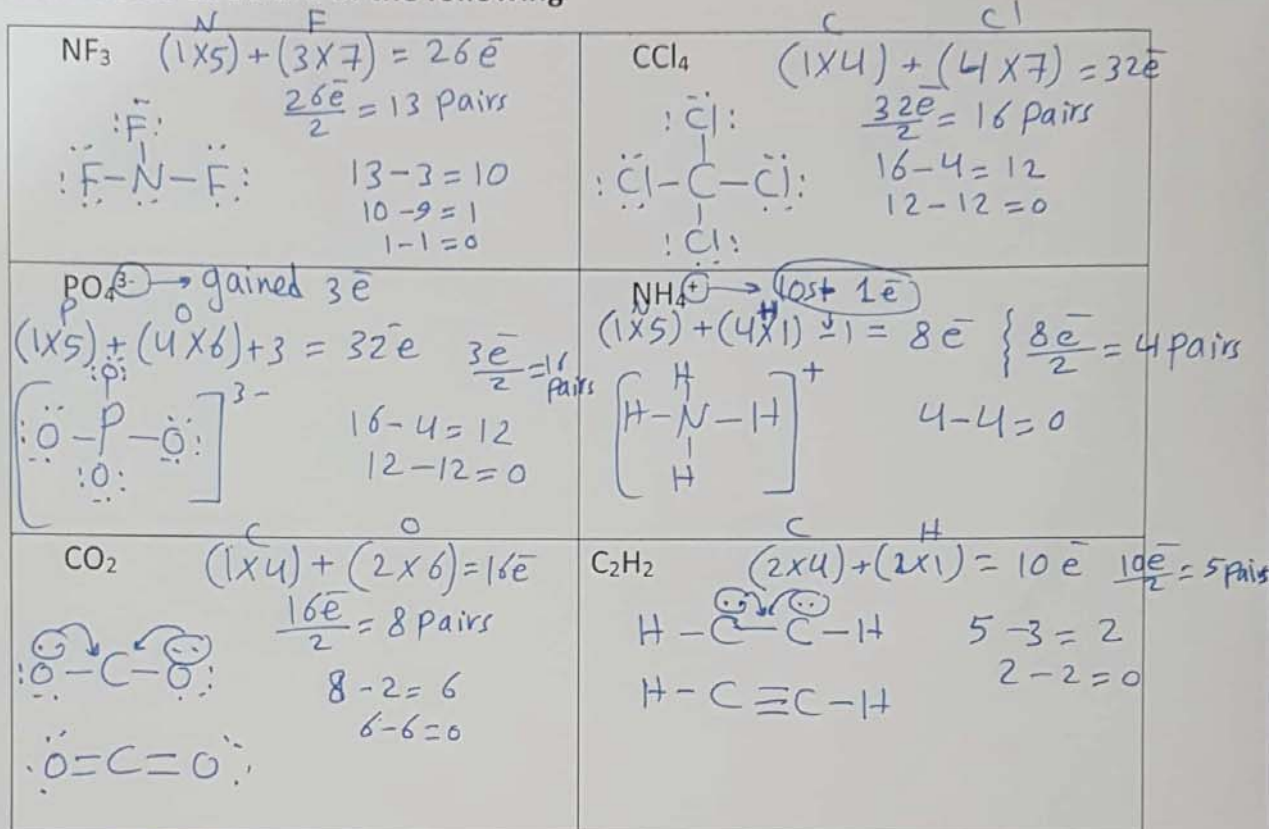 the following
NF₃
N F
(1×5) + (3×7) = 26e⁻
26e⁻/2 = 13 Pairs
:F:
:F-N-F:
13-3=10
10-9=1
1-1=0
CCl₄
C Cl
(1×4) + (4×7) = 32e⁻
32e⁻/2 = 16 Pairs
:Cl:
:Cl-C-Cl:
:Cl:
16-4=12
12-12=0
PO₄³⁻ → gained 3e⁻
P O
(1×5) + (4×6) + 3 = 32e⁻
3e⁻/2 = 16 Pairs
:O:
[:O-P-O:]³⁻
:O:
16-4=12
12-12=0
NH₄⁺ → lost 1e⁻
N H
(1×5) + (4×1) - 1 = 8e⁻ { 8e⁻/2 = 4 pairs
H
[H-N-H]⁺
H
4-4=0
CO₂
C O
(1×4) + (2×6) = 16e⁻
16e⁻/2 = 8 Pairs
:O-C-O:
8-2=6
6-6=0
O=C=O
C₂H₂
C H
(2×4) + (2×1) = 10e⁻ 10e⁻/2 = 5 Pairs
H-C-C-H
5-3=2
2-2=0
H-C≡C-H